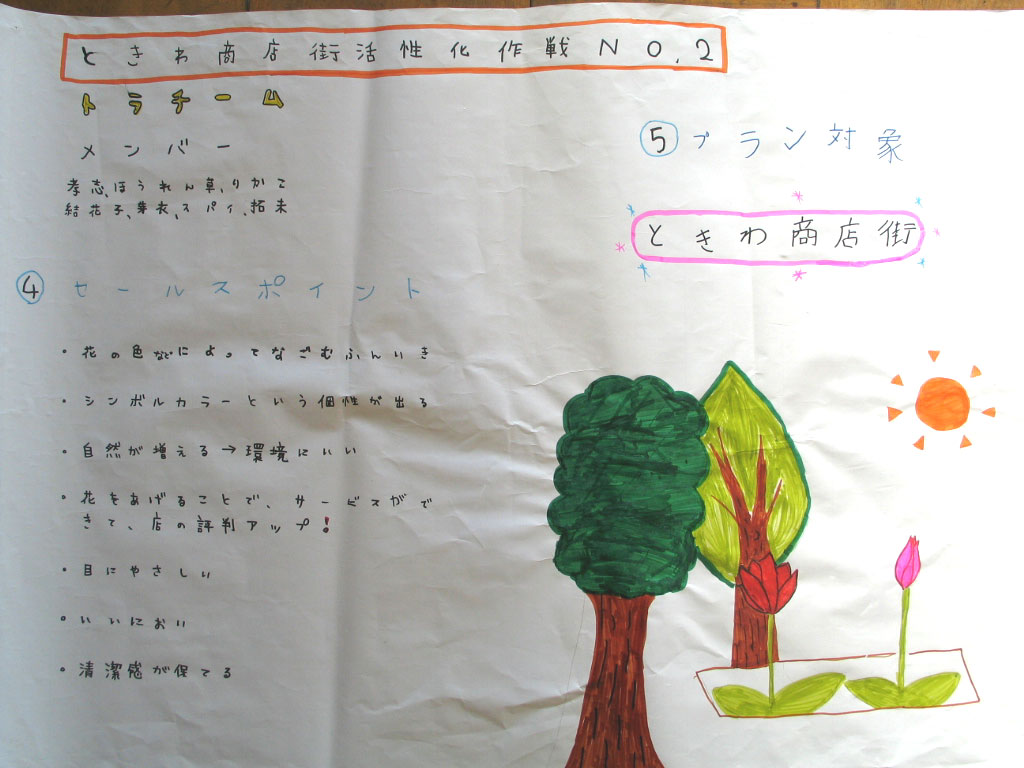 ときわ商店街活性化作戦NO.2
トラチーム
メンバー
孝志、ほうれん草、りかこ
結花子、芽衣、スパイ、拓未
④ セールスポイント
・花の色などによってなごむふんいき
・シンボルカラーという個性が出る
・自然が増える→環境にいい
・花をあげることで、サービスがで
きて、店の評判アップ!
・目にやさしい
・いいにおい
・清潔感が保てる
⑤ プラン対象
ときわ商店街